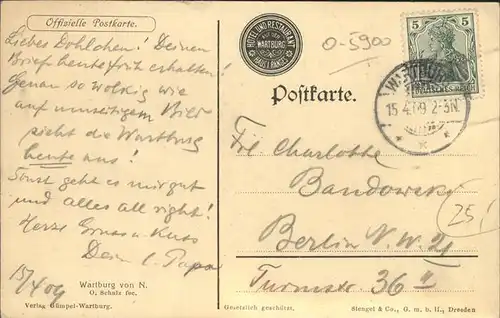 Offizielle Postkarte.
Liebes Dohlchen! Deinen
Brief heute früh erhalten!
Genau so wolkig wie
auf umseitigem Bild
sieht die Wartburg
heute aus!
Sonst geht es mir gut
und alles all right!
Herzl. Gruss u. Kuss
Dein l. Papa
15/4 09
Wartburg von N.
O. Schulz fec.
Verlag Gümpel-Wartburg.
HOTEL UND RESTAURANT
AUF DER
WARTBURG
0-5900
Postkarte.
5 5
WARTBURG
15.4.09. 2-3N.
Frl. Charlotte
Bandowsky
Berlin N.W. 21
Turmstr. 36 II
25.
Gesetzlich geschützt.
Stengel & Co., G. m. b. H., Dresden